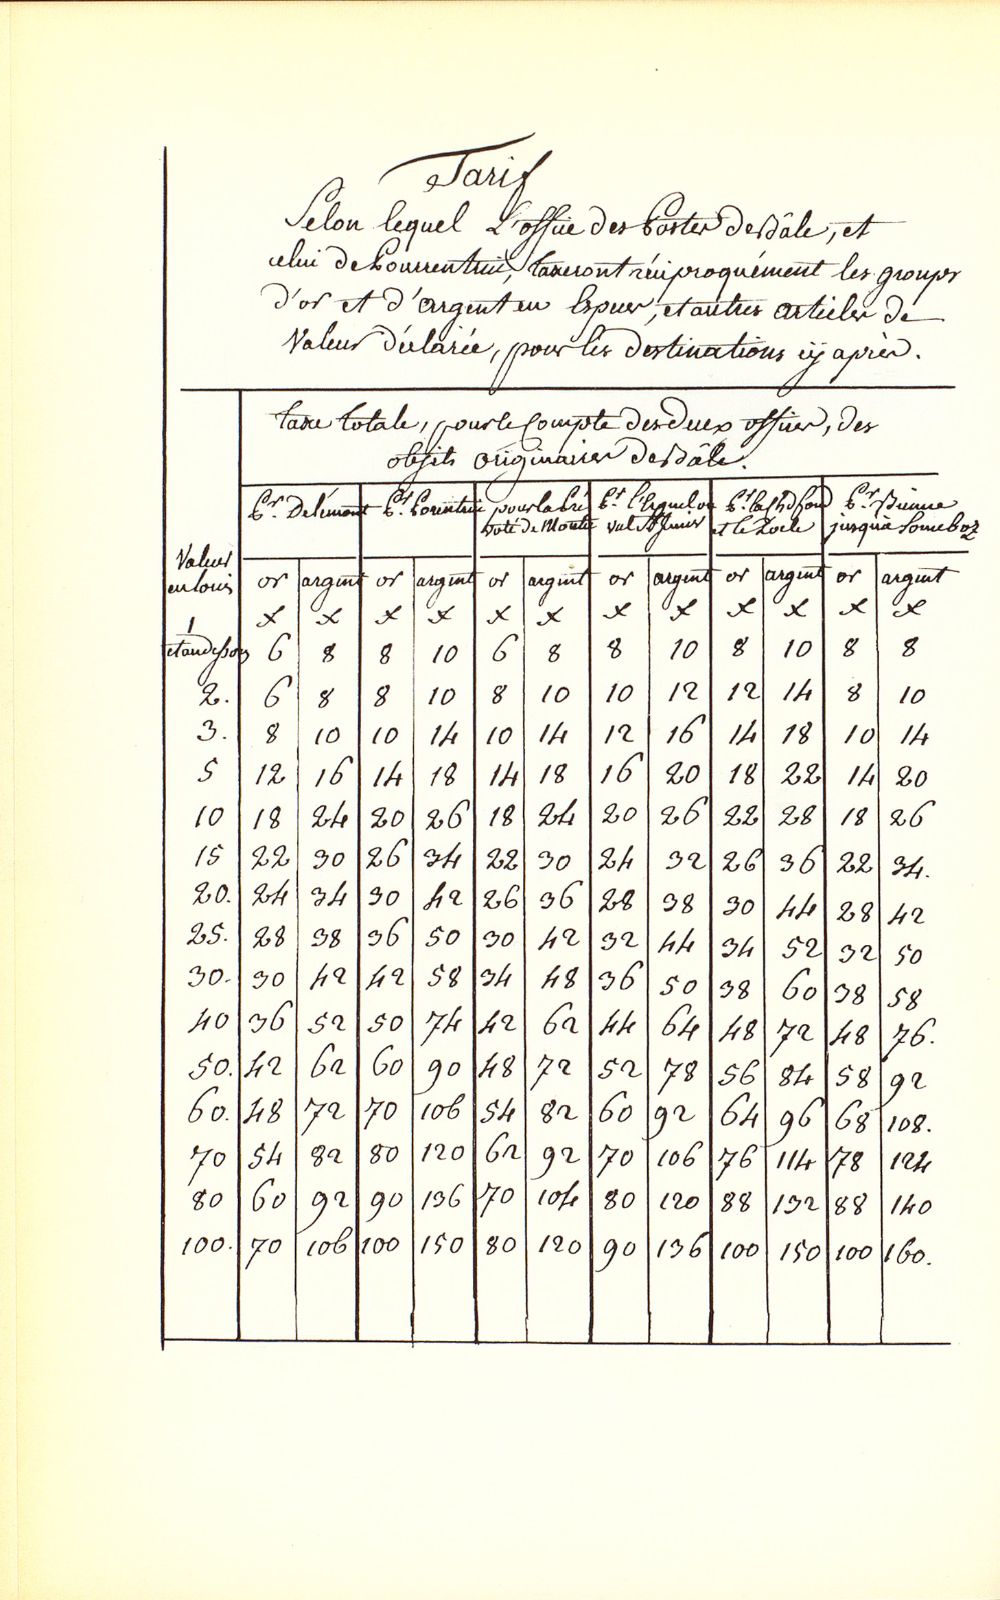 Tarif
Selon lequel L'office des Postes de Bâle, et
celui de Pourrentrui, taxeront réciproquément les groups
d'or et d'Argent en Espices, et autres articles de
Valeur déclarée, pour les destinations cÿ après.
taxe totale, pour le Compte des deux offices, des
objets originaires de Bâle.
Pr. Delémont Pr. Porentrui pour la Pré Pr. l'Erguel ou Pr. la Chd fond Pr. Bienne
voté de Moutie val St Imier et le Locle jusqu'a Someboz
Valeur
en Louis or argent or argent or argent or argent or argent or argent
x x x x x x x x x x x x
1
et audessous 6 8 8 10 6 8 8 10 8 10 8 8
2. 6 8 8 10 8 10 10 12 12 14 8 10
3. 8 10 10 14 10 14 12 16 14 18 10 14
5 12 16 14 18 14 18 16 20 18 22 14 20
10 18 24 20 26 18 24 20 26 22 28 18 26
15 22 30 26 34 22 30 24 32 26 36 22 34.
20. 24 34 30 42 26 36 28 38 30 44 28 42
25. 28 38 36 50 30 42 32 44 34 52 32 50
30. 30 42 42 58 34 48 36 50 38 60 38 58
40 36 52 50 74 42 62 44 64 48 72 48 76.
50. 42 62 60 90 48 72 52 78 56 84 58 92
60. 48 72 70 106 54 82 60 92 64 96 68 108.
70 54 82 80 120 62 92 70 106 76 114 78 124
80 60 92 90 136 70 104 80 120 88 132 88 140
100. 70 106 100 150 80 120 90 136 100 150 100 160.